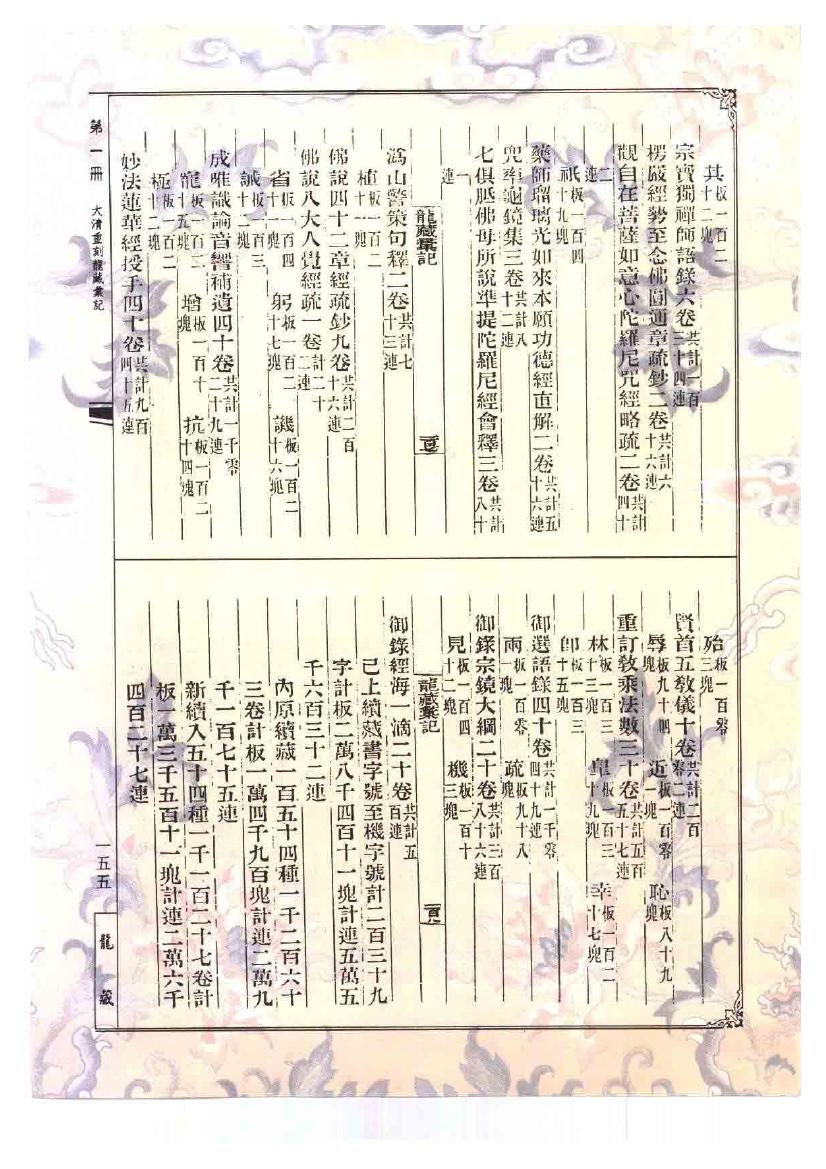 其板一百二十二塊
宗寶獨禪師語錄六卷共計一百三十四連
楞嚴經勢至念佛圓通章疏鈔二卷共計六十六連
觀自在菩薩如意心陀羅尼咒經略疏二卷共計四十二連
祇板一百四十九塊
藥師瑠璃光如來本願功德經直解二卷共計五十六連
兜率龜鏡集三卷共計八十二連
七俱胝佛母所說準提陀羅尼經會釋三卷共計八十一連
龍藏彙記
溈山警策句釋二卷共計七十三連
植板一百二十一塊
佛說四十二章經疏鈔九卷共計二百十六連
佛說八大人覺經疏一卷計二十二連
省板一百四十一塊 躬板一百二十七塊 譏板一百二十六塊
誡板一百三十二塊
成唯識論音響補遺四十卷共計一千零二十九連
寵板一百二十五塊 增板一百十塊 抗板一百二十四塊
極板一百二十二塊
妙法蓮華經授手四十卷共計九百四十五連
殆板一百零三塊
賢首五教儀十卷共計二百零二連
辱板九十四塊 近板一百零一塊 恥板八十九塊
重訂教乘法數三十卷共計五百五十七連
林板一百三十三塊 皐板一百三十九塊 幸板一百二十七塊
即板一百三十五塊
御選語錄四十卷共計一千零四十九連
兩板一百零塊 疏板九十八塊
御錄宗鏡大綱二十卷共計三百八十六連
見板一百四十二塊 機板一百十三塊
龍藏彙記
御錄經海一滴二十卷共計五百連
已上續藏書字號至機字號計二百三十九
字計板二萬八千四百十一塊計連五萬五
千六百三十二連
內原續藏一百五十四種一千二百六十
三卷計板一萬四千九百塊計連二萬九
千一百七十五連
新續入五十四種一千一百二十七卷計
板一萬三千五百十一塊計連二萬六千
四百二十七連
第一冊 大清重刻龍藏彙記
一五五
龍藏